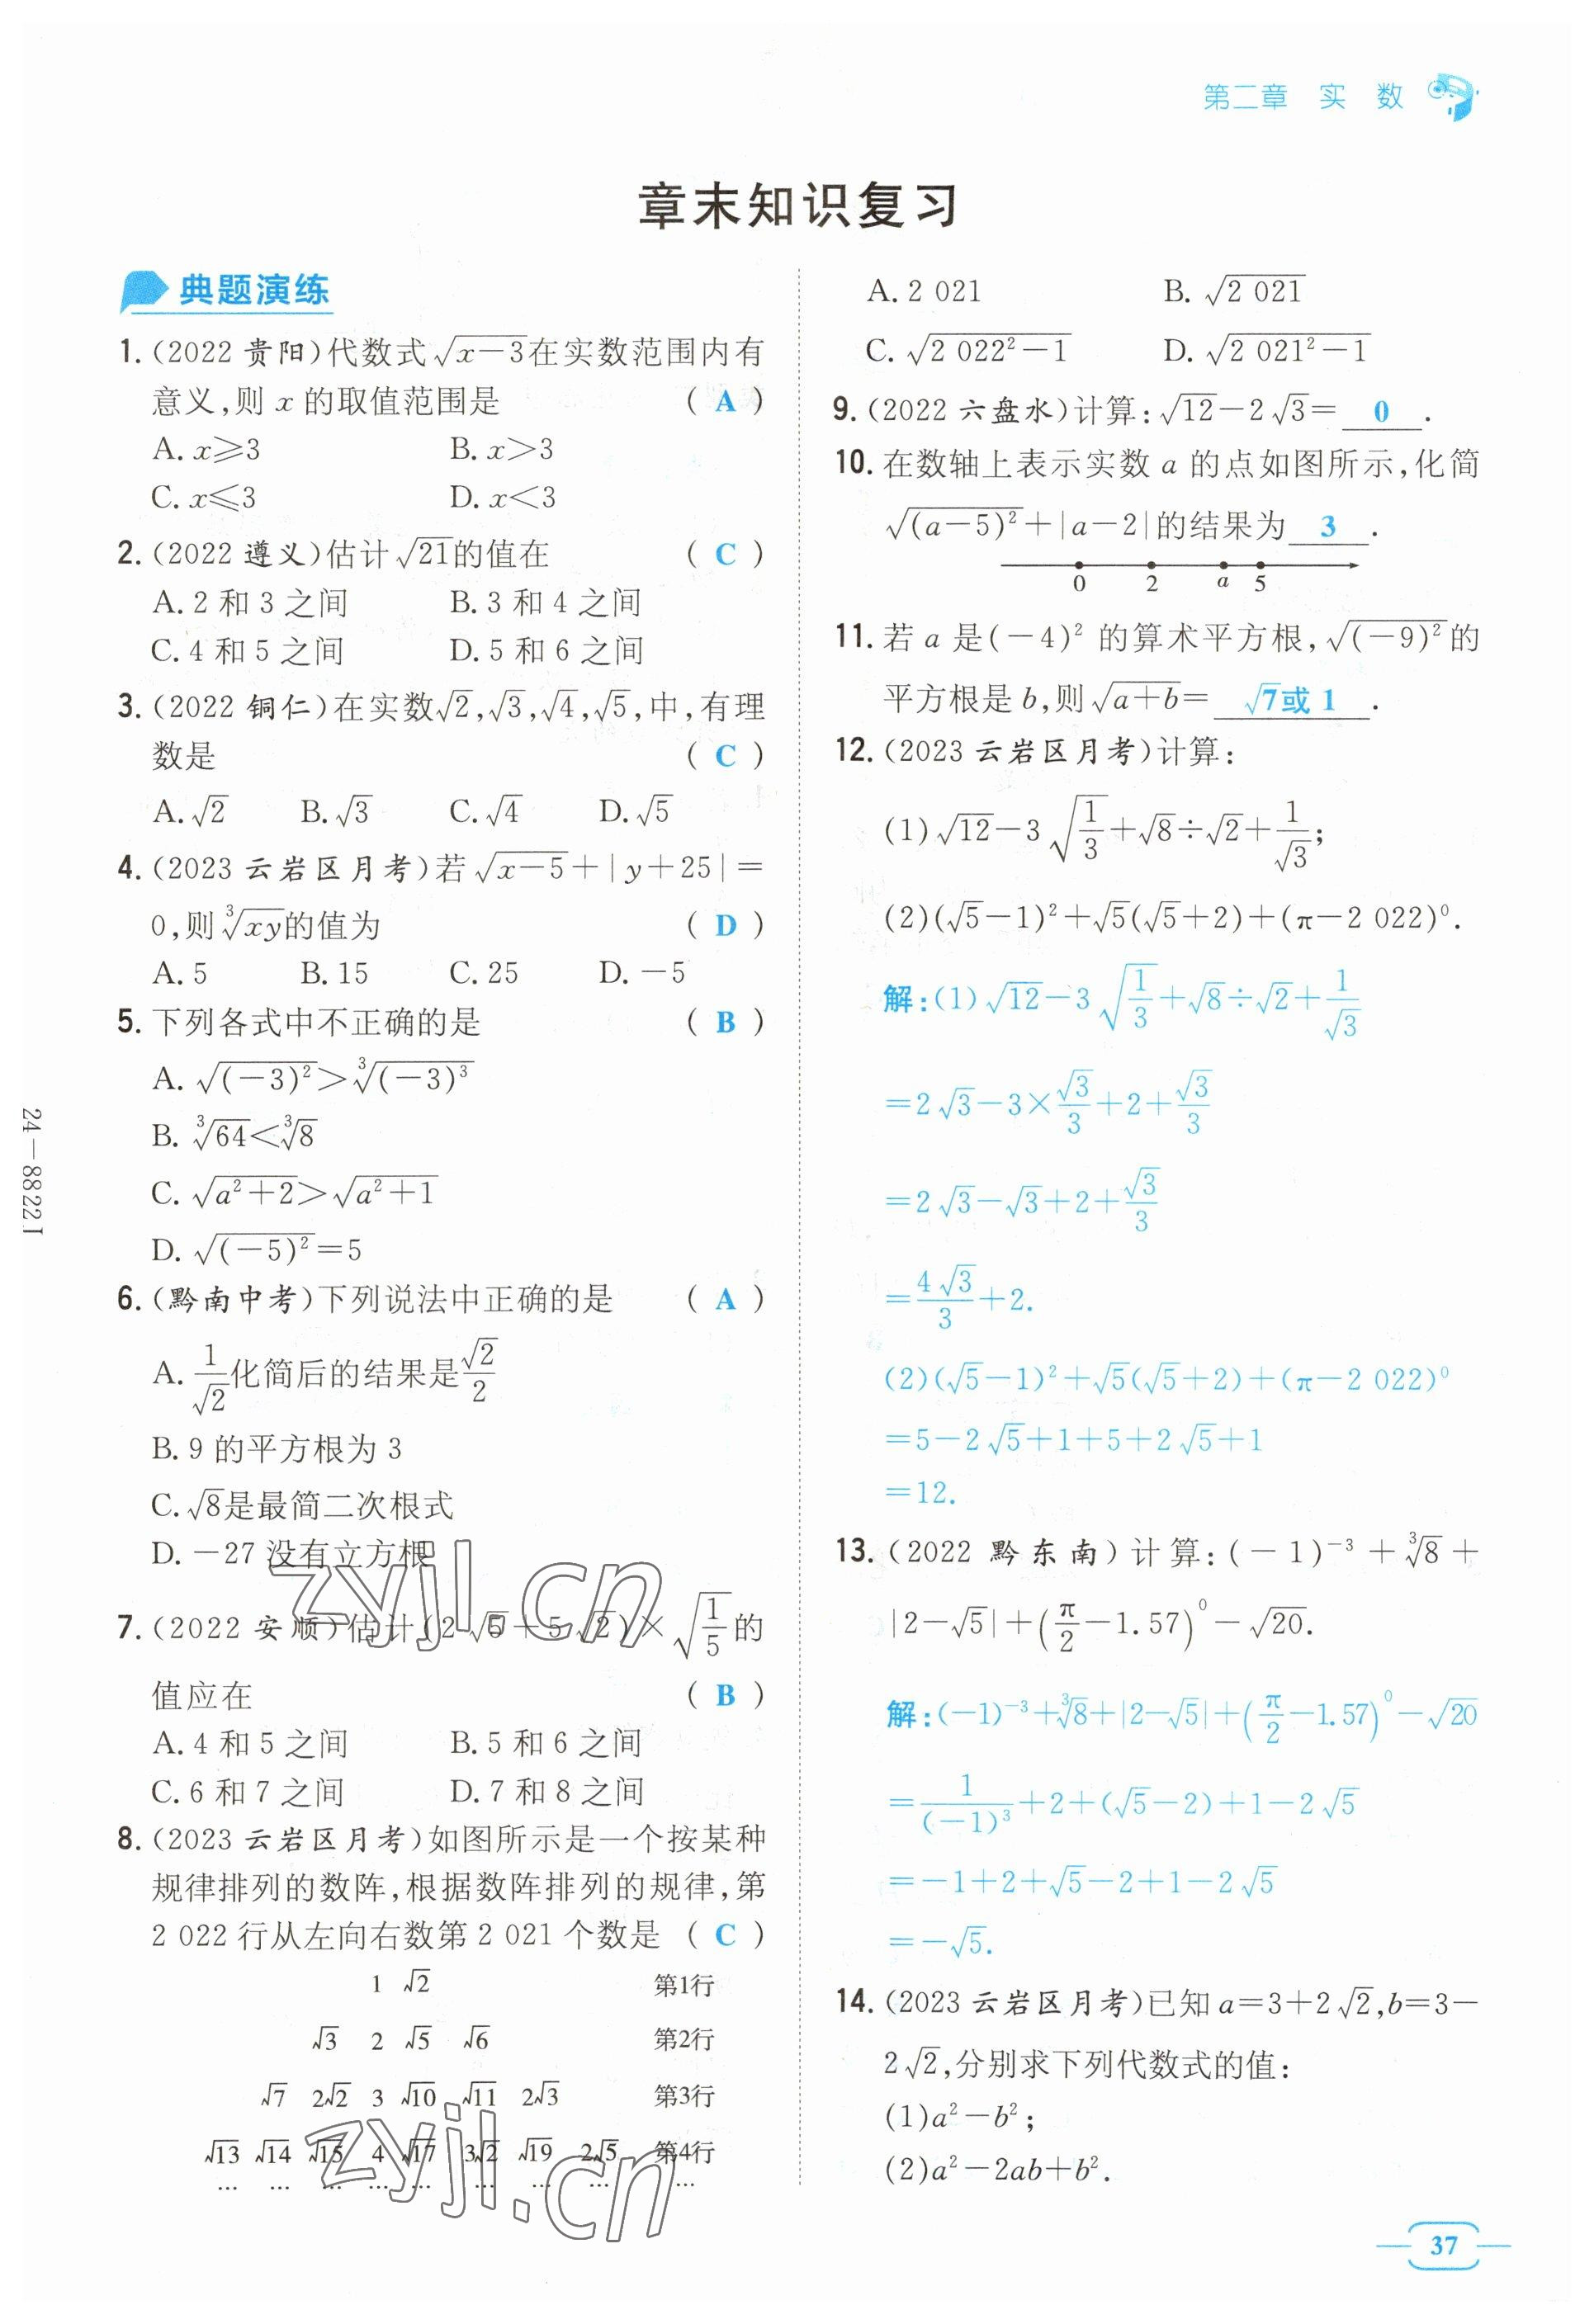 第二章 实 数
章末知识复习
典题演练
1.(2022 贵阳)代数式√(x-3)在实数范围内有
意义,则 x 的取值范围是 ( A )
A. x⩾3 B. x>3
C. x⩽3 D. x<3
2.(2022 遵义)估计√21的值在 ( C )
A. 2 和 3 之间 B. 3 和 4 之间
C. 4 和 5 之间 D. 5 和 6 之间
3.(2022 铜仁)在实数√2,√3,√4,√5,中,有理
数是 ( C )
A. √2 B. √3 C. √4 D. √5
4.(2023 云岩区月考)若√(x-5)+|y+25|=
0,则∛(xy)的值为 ( D )
A. 5 B. 15 C. 25 D. -5
5. 下列各式中不正确的是 ( B )
A. √((-3)²)>∛((-3)³)
B. ∛64<∛8
C. √(a²+2)>√(a²+1)
D. √((-5)²)=5
6.(黔南中考)下列说法中正确的是 ( A )
A. 1/√2化简后的结果是√2/2
B. 9 的平方根为 3
C. √8是最简二次根式
D. -27 没有立方根
7.(2022 安顺)估计(2√5+5√2)×√(1/5)的
值应在 ( B )
A. 4 和 5 之间 B. 5 和 6 之间
C. 6 和 7 之间 D. 7 和 8 之间
8.(2023 云岩区月考)如图所示是一个按某种
规律排列的数阵,根据数阵排列的规律,第
2 022 行从左向右数第 2 021 个数是 ( C )
1 √2 第1行
√3 2 √5 √6 第2行
√7 2√2 3 √10 √11 2√3 第3行
√13 √14 √15 4 √17 3√2 √19 2√5 第4行
… … … … … … … … …
A. 2 021 B. √(2 021)
C. √(2 022²-1) D. √(2 021²-1)
9.(2022 六盘水)计算:√12-2√3= 0 .
10. 在数轴上表示实数 a 的点如图所示,化简
√((a-5)²)+|a-2|的结果为 3 .
0 2 a 5
11. 若 a 是(-4)² 的算术平方根,√((-9)²)的
平方根是 b,则√(a+b)= √7或 1 .
12.(2023 云岩区月考)计算:
(1)√12-3√(1/3)+√8÷√2+1/√3;
(2)(√5-1)²+√5(√5+2)+(π-2 022)⁰.
解:(1)√12-3√(1/3)+√8÷√2+1/√3
=2√3-3×√3/3+2+√3/3
=2√3-√3+2+√3/3
=4√3/3+2.
(2)(√5-1)²+√5(√5+2)+(π-2 022)⁰
=5-2√5+1+5+2√5+1
=12.
13.(2022 黔东南)计算:(-1)⁻³+∛8+
|2-√5|+(π/2-1.57)⁰-√20.
解:(-1)⁻³+∛8+|2-√5|+(π/2-1.57)⁰-√20
=1/(-1)³+2+(√5-2)+1-2√5
=-1+2+√5-2+1-2√5
=-√5.
14.(2023 云岩区月考)已知 a=3+2√2,b=3-
2√2,分别求下列代数式的值:
(1)a²-b²;
(2)a²-2ab+b².
24-8822J
zyjl.cn
zyjl.cn
37